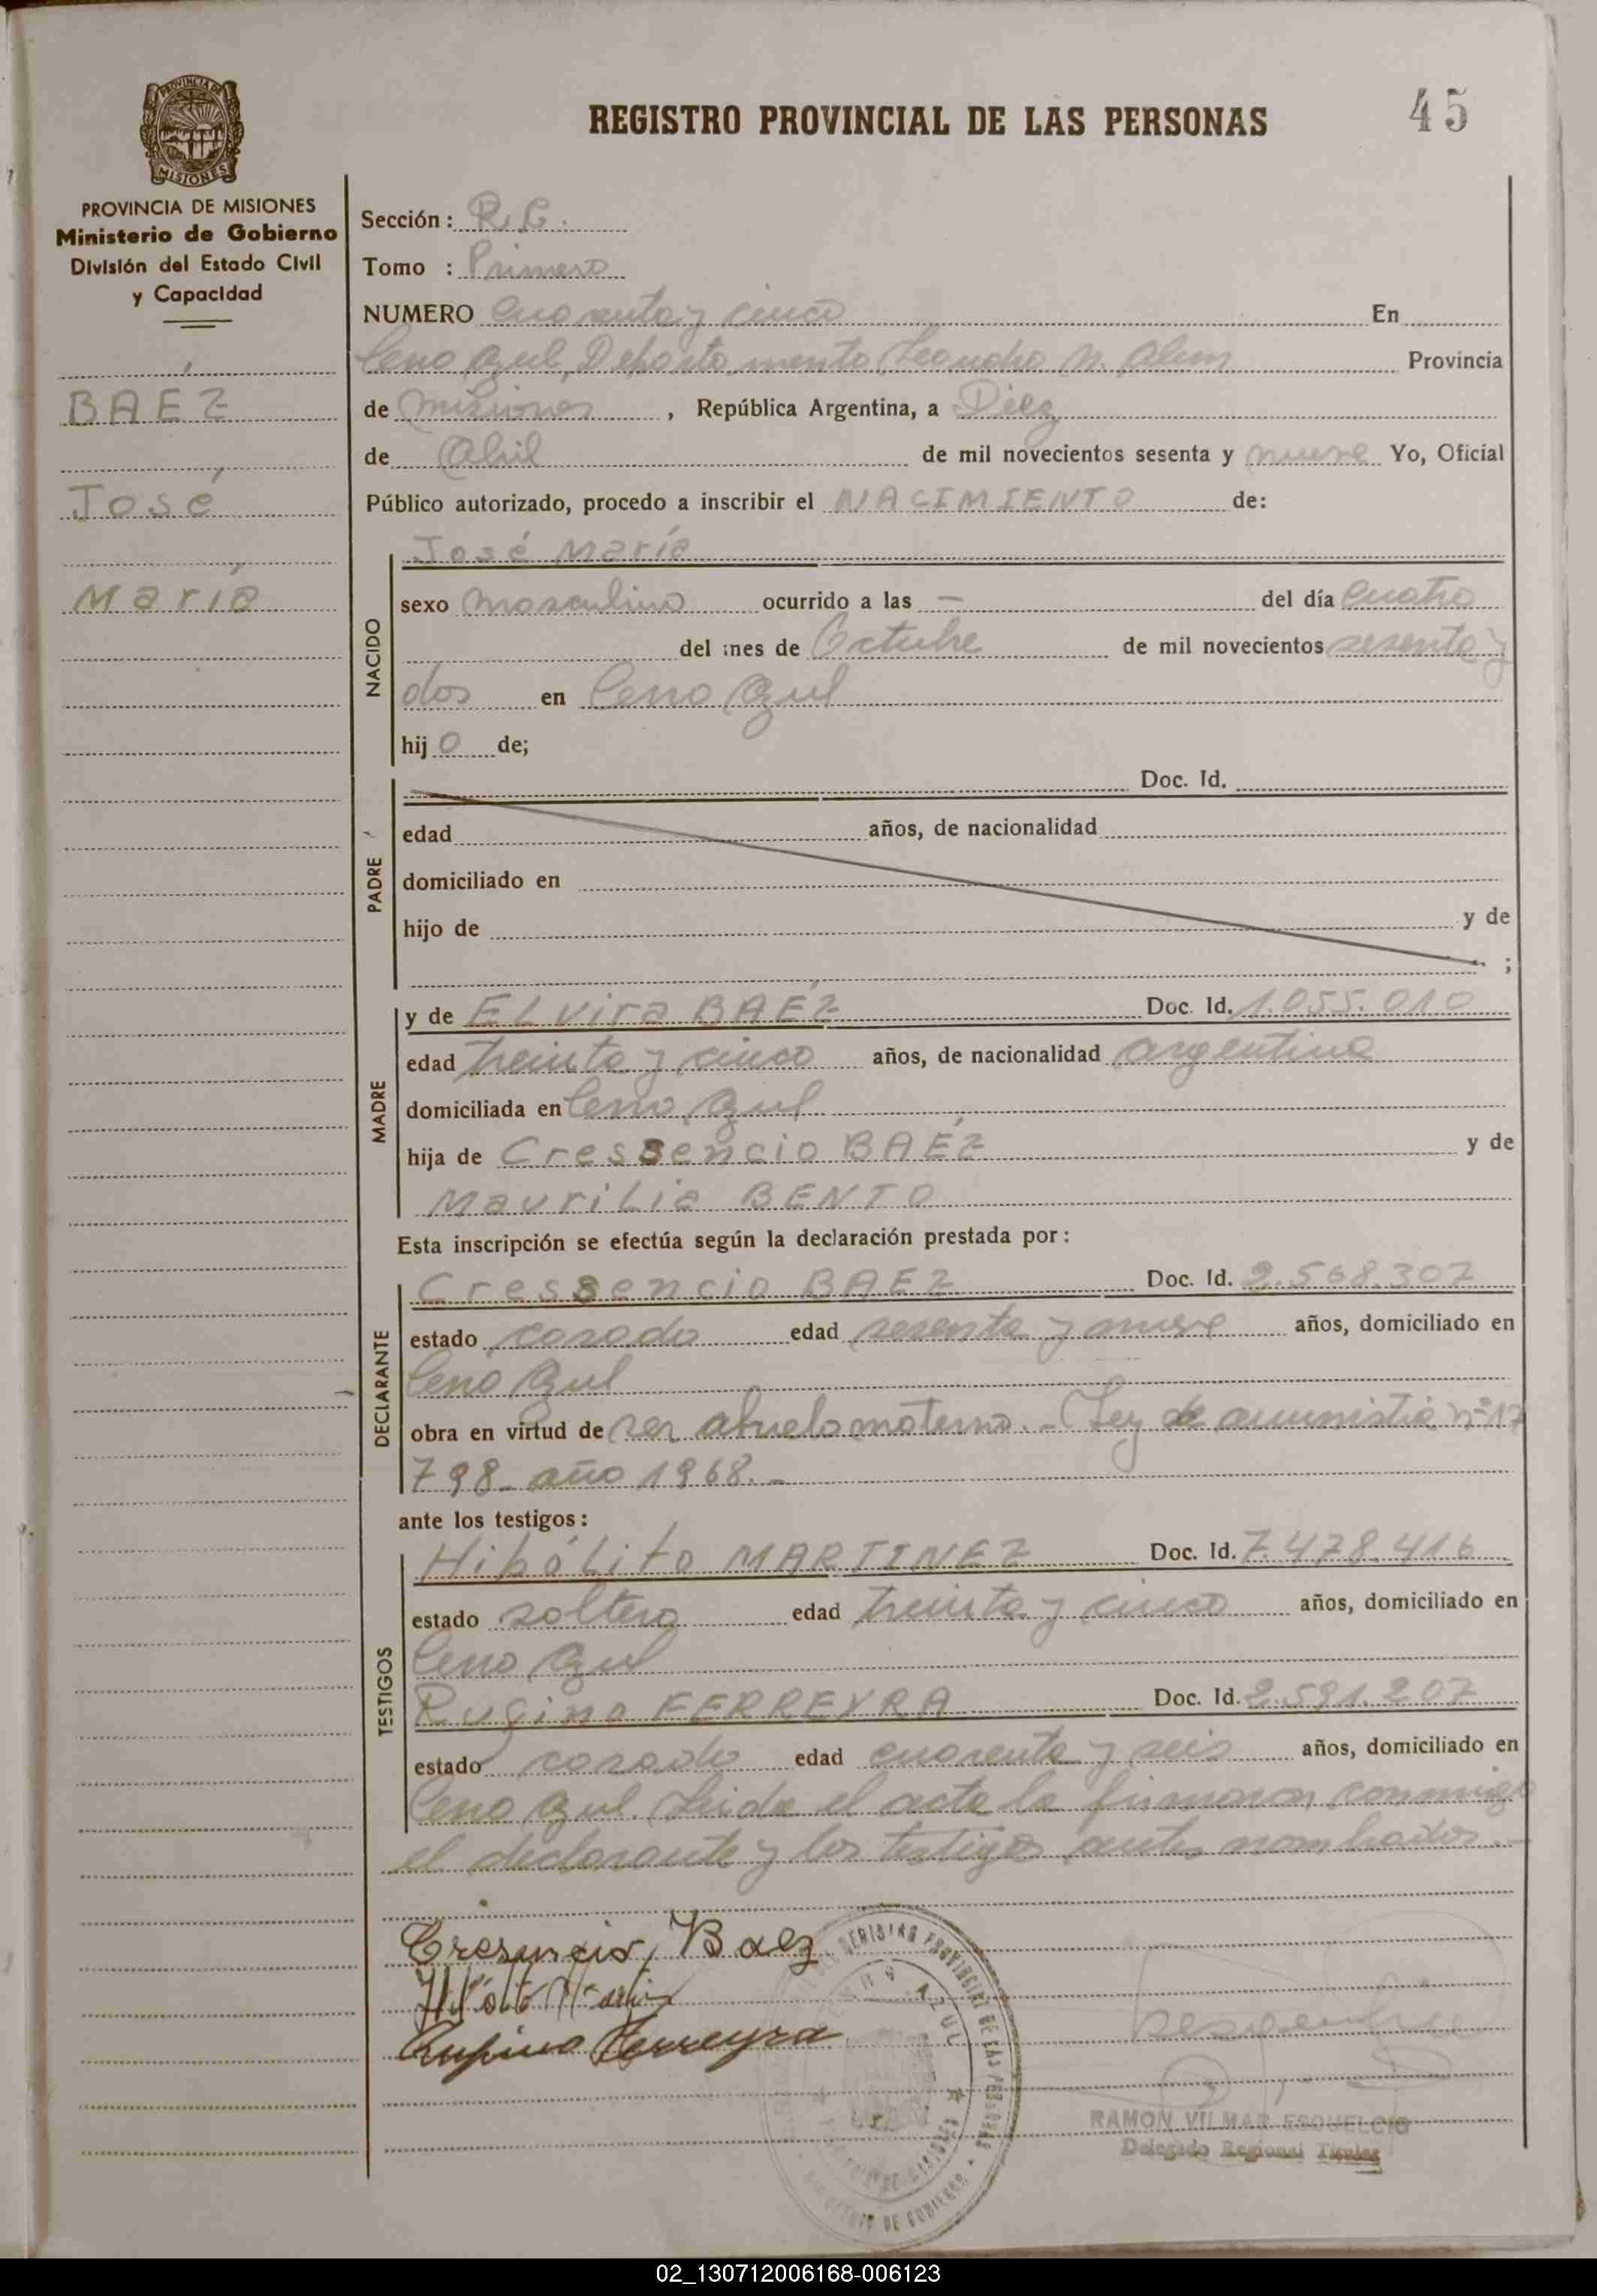 REGISTRO PROVINCIAL DE LAS PERSONAS
45
PROVINCIA DE
MISIONES
PROVINCIA DE MISIONES
Ministerio de Gobierno
División del Estado Civil
y Capacidad
BAÉZ
José
María
Sección: R.C.
Tomo : Primero
NUMERO Cuarenta y cinco En
Cerro Azul, Departamento Leandro N. Alem Provincia
de Misiones, República Argentina, a Diez
de Abril de mil novecientos sesenta y nueve Yo, Oficial
Público autorizado, procedo a inscribir el NACIMIENTO de:
NACIDO
José María
sexo masculino ocurrido a las — del día Cuatro
del mes de Octubre de mil novecientos sesenta y
dos en Cerro Azul
hijo de;
PADRE
Doc. Id.
edad años, de nacionalidad
domiciliado en
hijo de y de
;
MADRE
y de ELvira BAÉZ Doc. Id. 1.055.010
edad treinta y cinco años, de nacionalidad argentina
domiciliada en Cerro Azul
hija de Cressencio BAÉZ y de
MauriLia BENTO
Esta inscripción se efectúa según la declaración prestada por:
DECLARANTE
Cressencio BAEZ Doc. Id. 2.568.307
estado casado edad sesenta y nueve años, domiciliado en
Cerro Azul
obra en virtud de ser abuelo materno.- Ley de amnistia nº 17
798- año 1968.-
ante los testigos:
TESTIGOS
HipóLito MARTINEZ Doc. Id. 7.478.416
estado soltero edad treinta y cinco años, domiciliado en
Cerro Azul
Rufino FERREYRA Doc. Id. 2.591.207
estado casado edad cuarenta y seis años, domiciliado en
Cerro Azul. Leida el acta la firmaron conmigo
el declarante y los testigos antes nombrados.-
Cresencio Baez
Rufino Ferreyra
REGISTRO PROVINCIAL DE LAS PERSONAS
AZUL
DE GOBIERNO
RAMON VILMAR ESQUELCIO
Delegado Regional Titular
02_130712006168-006123